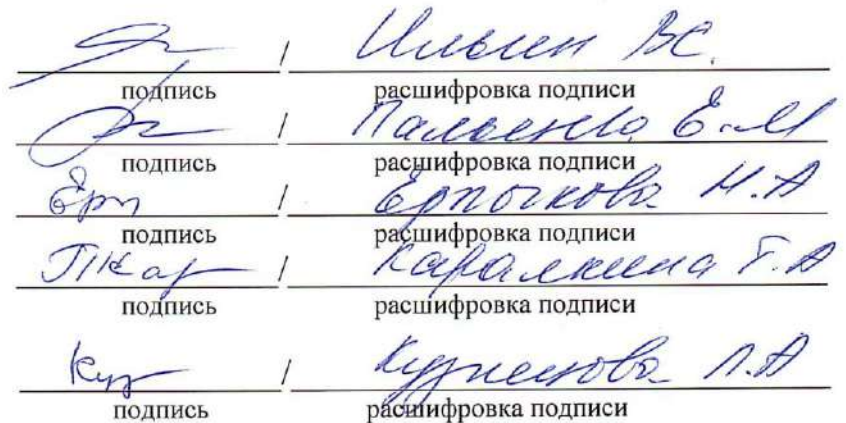 / Ильин В.С.
подпись расшифровка подписи
/ Е.М
подпись расшифровка подписи
Ерп / Ерпычкова Н.А
подпись расшифровка подписи
ТКар / Каралкина Т.А
подпись расшифровка подписи
Куз / Кузнецова Л.А
подпись расшифровка подписи